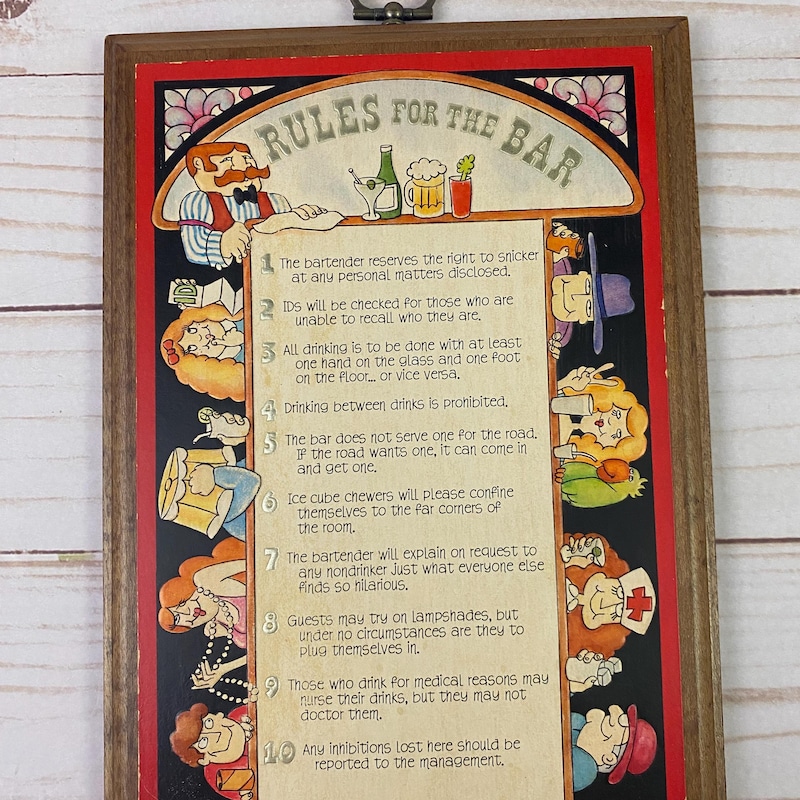 RULES FOR THE BAR
1 The bartender reserves the right to snicker
at any personal matters disclosed.
2 IDs will be checked for those who are
unable to recall who they are.
3 All drinking is to be done with at least
one hand on the glass and one foot
on the floor... or vice versa.
4 Drinking between drinks is prohibited.
5 The bar does not serve one for the road.
If the road wants one, it can come in
and get one.
6 Ice cube chewers will please confine
themselves to the far corners of
the room.
7 The bartender will explain on request to
any nondrinker just what everyone else
finds so hilarious.
8 Guests may try on lampshades, but
under no circumstances are they to
plug themselves in.
9 Those who drink for medical reasons may
nurse their drinks, but they may not
doctor them.
10 Any inhibitions lost here should be
reported to the management.
ID